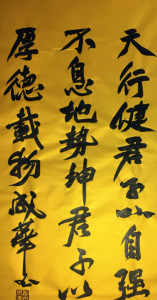 天行健君子以自强
不息地势坤君子以
厚德载物成华书